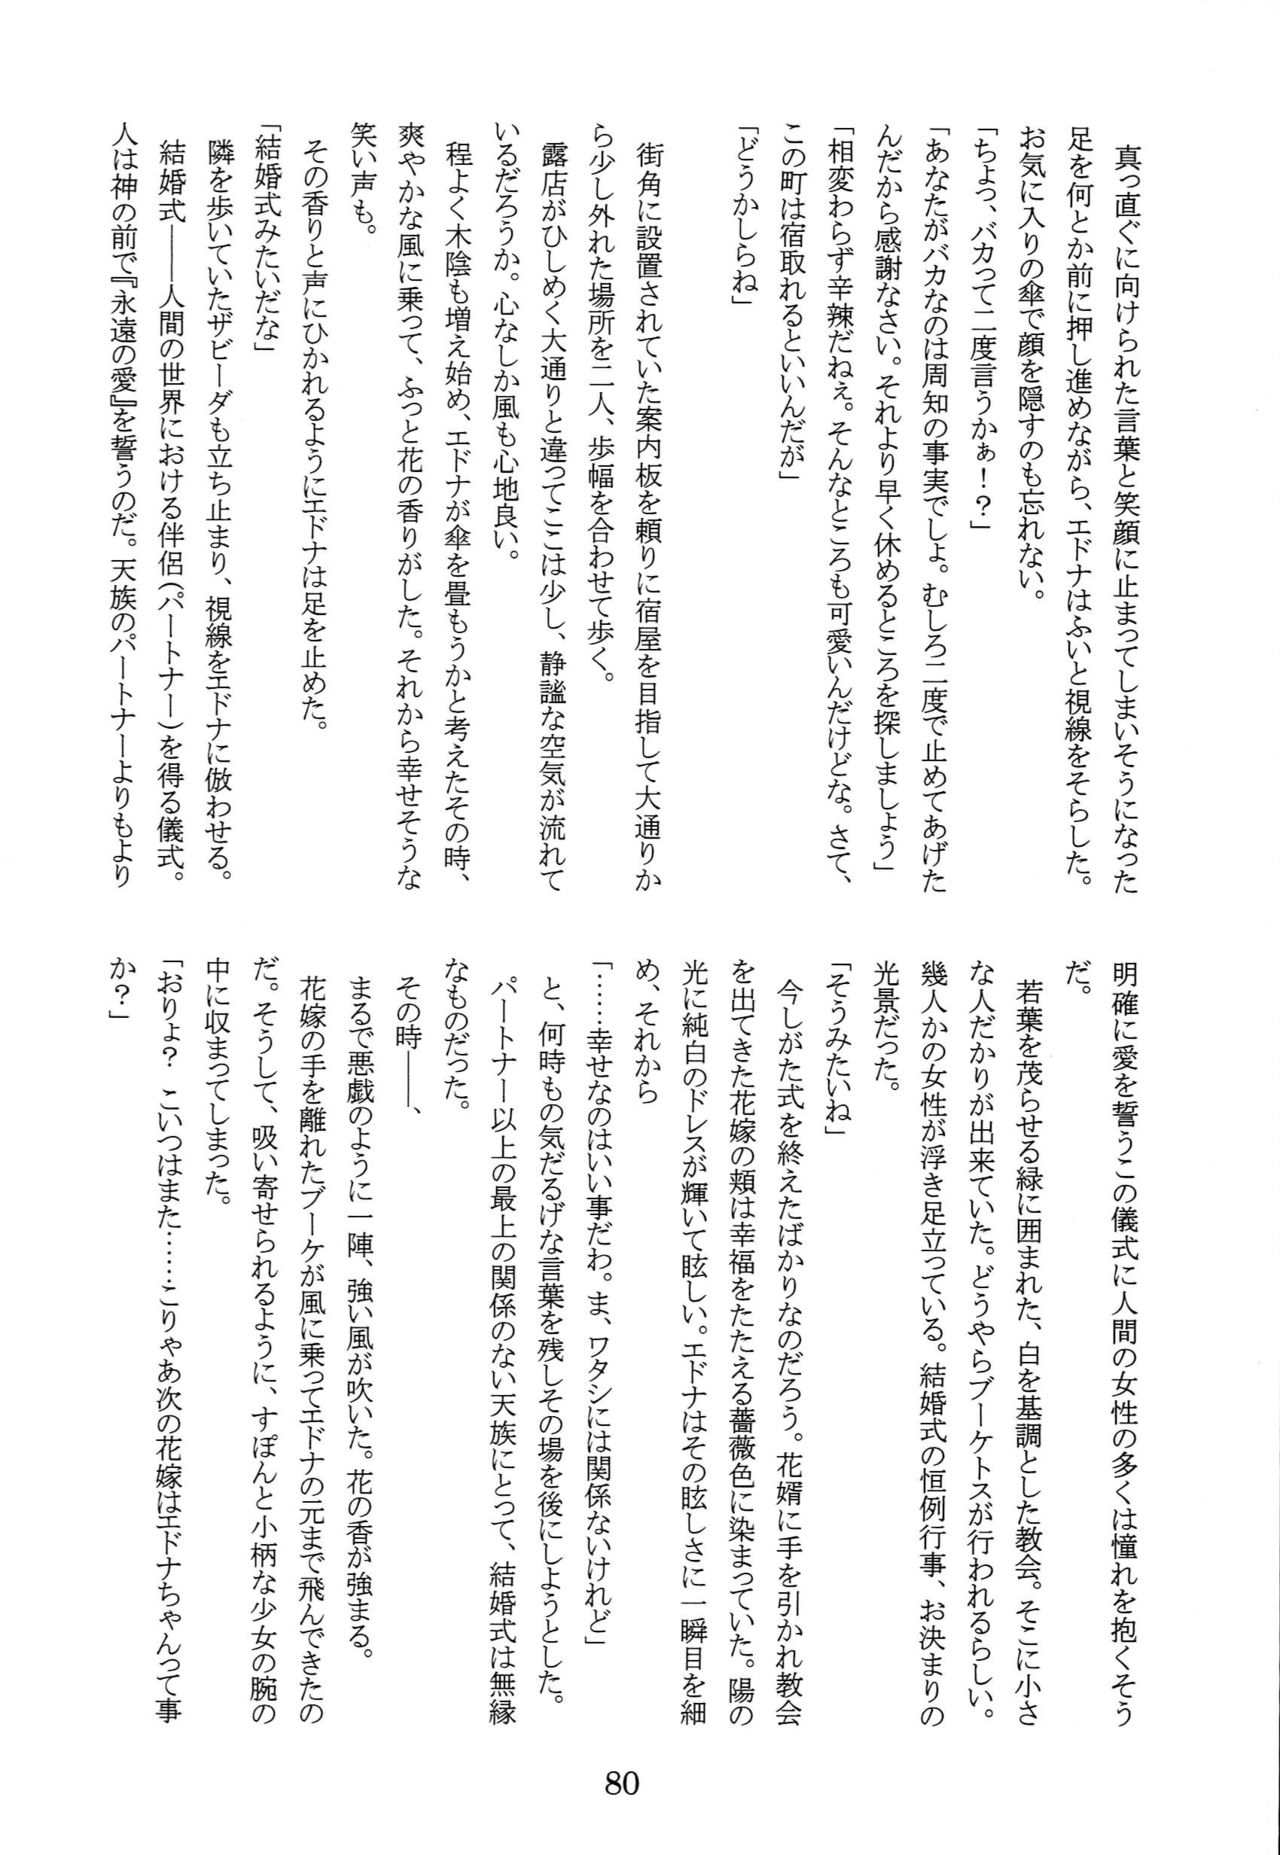 真っ直ぐに向けられた言葉と笑顔に止まってしまいそうになった
足を何とか前に押し進めながら、エドナはふいと視線をそらした。
お気に入りの傘で顔を隠すのも忘れない。
「ちょっ、バカって二度言うかぁ！？」
「あなたがバカなのは周知の事実でしょ。むしろ二度で止めてあげた
んだから感謝なさい。それより早く休めるところを探しましょう」
「相変わらず辛辣だねぇ。そんなところも可愛いんだけどな。さて、
この町は宿取れるといいんだが」
「どうかしらね」
街角に設置されていた案内板を頼りに宿屋を目指して大通りか
ら少し外れた場所を二人、歩幅を合わせて歩く。
露店がひしめく大通りと違ってここは少し、静謐な空気が流れて
いるだろうか。心なしか風も心地良い。
程よく木陰も増え始め、エドナが傘を畳もうかと考えたその時、
爽やかな風に乗って、ふっと花の香りがした。それから幸せそうな
笑い声も。
その香りと声にひかれるようにエドナは足を止めた。
「結婚式みたいだな」
隣を歩いていたザビーダも立ち止まり、視線をエドナに倣わせる。
結婚式――人間の世界における伴侶（パートナー）を得る儀式。
人は神の前で『永遠の愛』を誓うのだ。天族のパートナーよりもより
明確に愛を誓うこの儀式に人間の女性の多くは憧れを抱くそう
だ。
若葉を茂らせる緑に囲まれた、白を基調とした教会。そこに小さ
な人だかりが出来ていた。どうやらブーケトスが行われるらしい。
幾人かの女性が浮き足立っている。結婚式の恒例行事、お決まりの
光景だった。
「そうみたいね」
今しがた式を終えたばかりなのだろう。花婿に手を引かれ教会
を出てきた花嫁の頬は幸福をたたえる薔薇色に染まっていた。陽の
光に純白のドレスが輝いて眩しい。エドナはその眩しさに一瞬目を細
め、それから
「……幸せなのはいい事だわ。ま、ワタシには関係ないけれど」
と、何時もの気だるげな言葉を残しその場を後にしようとした。
パートナー以上の最上の関係のない天族にとって、結婚式は無縁
なものだった。
その時――、
まるで悪戯のように一陣、強い風が吹いた。花の香が強まる。
花嫁の手を離れたブーケが風に乗ってエドナの元まで飛んできたの
だ。そうして、吸い寄せられるように、すぽんと小柄な少女の腕の
中に収まってしまった。
「おりょ？　こいつはまた……こりゃあ次の花嫁はエドナちゃんって事
か？」
80